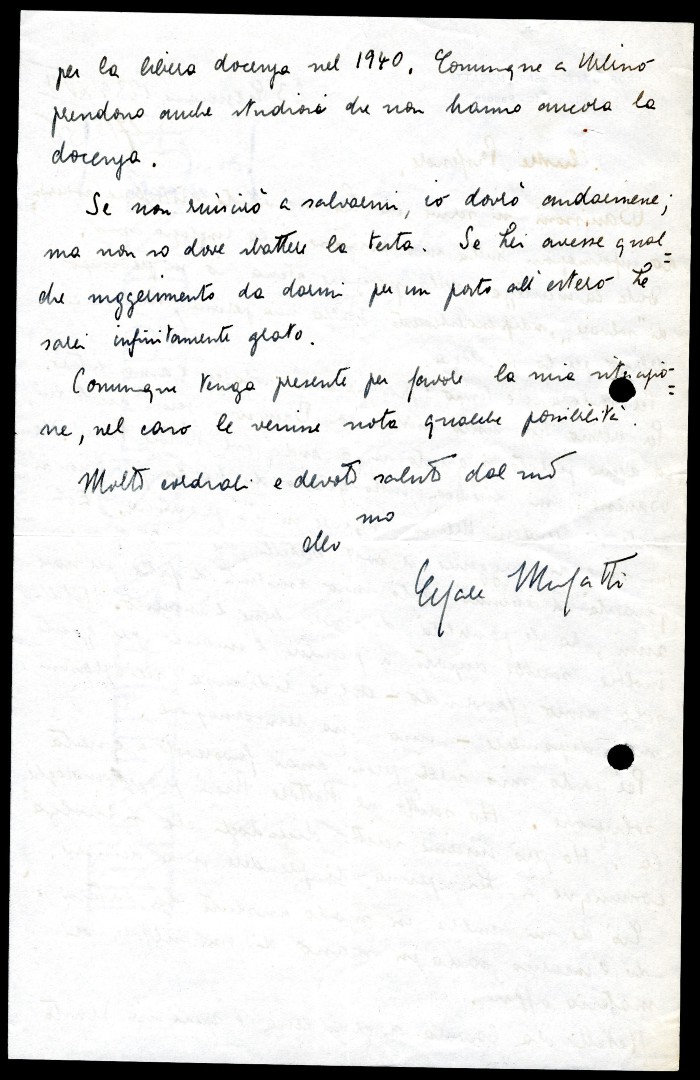 per la libera docenza nel 1940. Comunque a Urbino
prendono anche studiosi che non hanno ancora la
docenza.
Se non riuscirò a salvarmi, io dovrò andarmene;
ma non so dove sbattere la testa. Se Lei avesse qual=
che suggerimento da darmi per un posto all'estero Le
sarei infinitamente grato.
Comunque tenga presente per favore la mia situazio=
ne, nel caso le venisse nota qualche possibilità.
Molti cordiali e devoti saluti dal suo
dev mo
Cesare